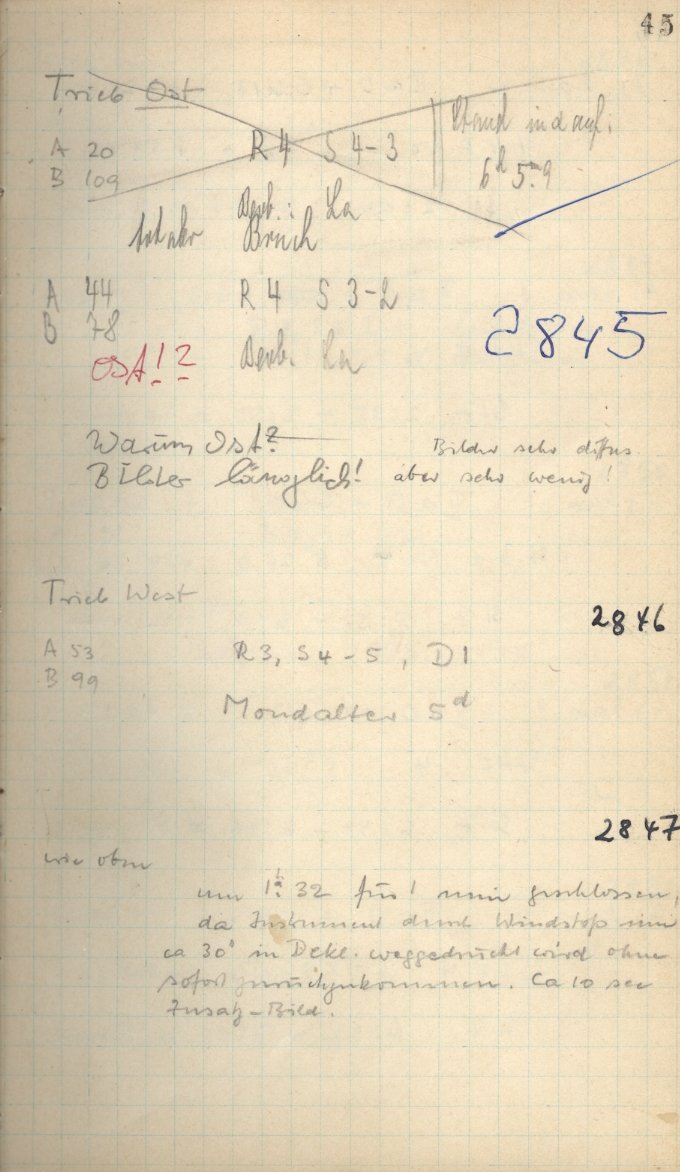 45
Trieb Ost
A 20
B 109
R 4 S 4-3
Stand ind auf:
6h 5m.9
Beob.: La
Bruch
A 44
B 78
R 4 S 3-2
2845
OST!?
Beob. La
Warum Ost?
Bilder sehr diffus
Bilder länglich!
aber sehr wenig!
Trieb West
2846
A 53
B 99
R3, S4-5, D1
Mondalter 5d
2847
wie oben
um 1h 32 für 1 min geschlossen,
da Instrument durch Windstoß um
ca 30° in Dekl. weggedrückt wird ohne
sofort zurückzukommen. Ca 10 sec
Zusatz-Bild.